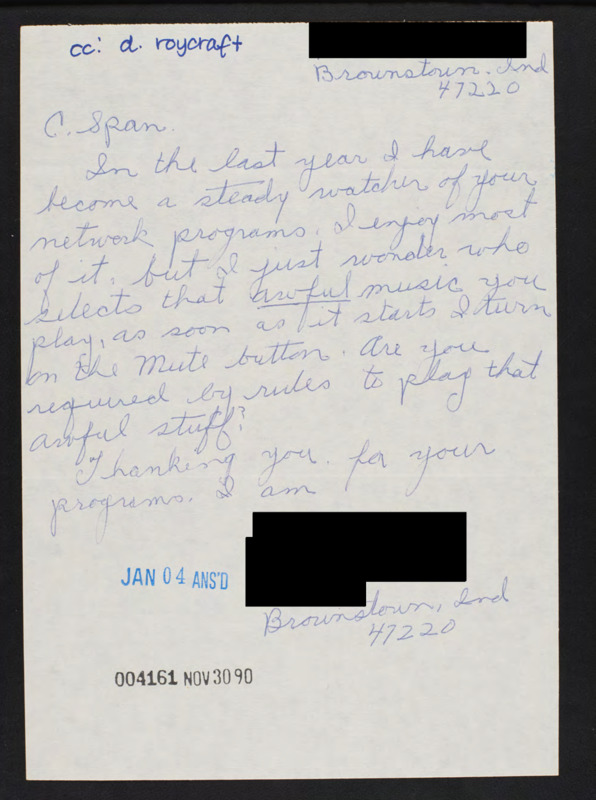 cc: d. roycraft
Brownstown. Ind
47220
C. Span.
In the last year I have
become a steady watcher of your
network programs. I enjoy most
of it, but I just wonder who
selects that awful music you
play, as soon as it starts I turn
on the Mute button. Are you
required by rules to play that
awful stuff?
Thanking you. for your
programs. I am
JAN 04 ANS'D
Brownstown, Ind
47220
004161 NOV 30 90